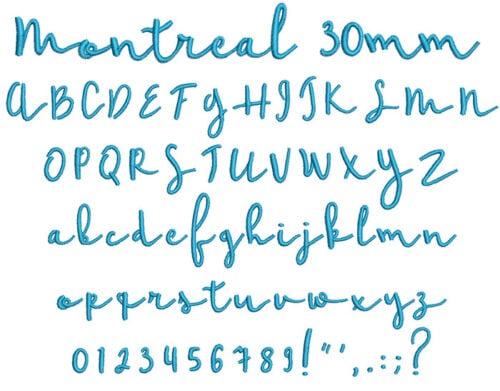 Montreal 30mm
ABCDEFGHIJKLMN
OPQRSTUVWXYZ
abcdefghijklmn
opqrstuvwxyz
0123456789!"',.:;?